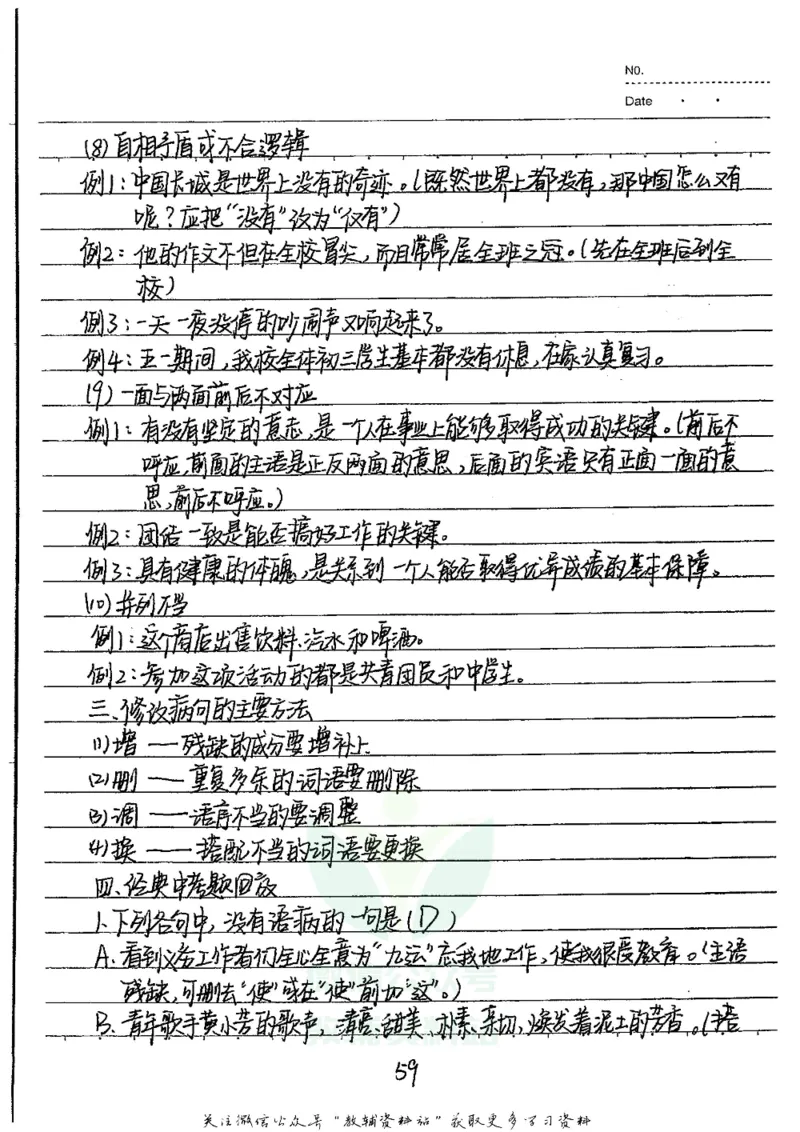 NO.
Date
(8)自相矛盾或不合逻辑
例1:中国长城是世界上没有的奇迹。(既然世界上都没有,那中国怎么又有
呢?应把“没有”改为“仅有”)
例2:他的作文不但在全校冒尖,而且常常居全班之冠。(先在全班后到全
校)
例3:一天一夜没停的吵闹声又响起来了。
例4:五一期间,我校全体初三学生基本都没有休息,在家认真复习。
(9)一面与两面前后不对应
例1:有没有坚定的意志,是一个人在事业上能够取得成功的关键。(前后不
呼应,前面的主语是正反两面的意思,后面的宾语只有正面一面的意
思,前后不呼应。)
例2:团结一致是能否搞好工作的关键。
例3:具有健康的体魄,是关系到一个人能否取得优异成绩的基本保障。
(10)并列不当
例1:这个商店出售饮料、汽水和啤酒。
例2:参加这项活动的都是共青团员和中学生。
三、修改病句的主要方法
(1)增——残缺的成分要增补上
(2)删——重复多余的词语要删除
(3)调——语序不当的要调整
(4)换——搭配不当的词语要更换
四、经典中考题回放
1.下列各句中,没有语病的一句是(D)
A.看到义务工作者们全心全意为“九运”忘我地工作,使我很受教育。(主语
残缺,可删去“使”或在“使”前加“这”。)
B.青年歌手黄小芳的歌声,清亮、甜美、朴素、亲切,焕发着泥土的芳香。(搭
59
关注微信公众号“教辅资料站”获取更多学习资料